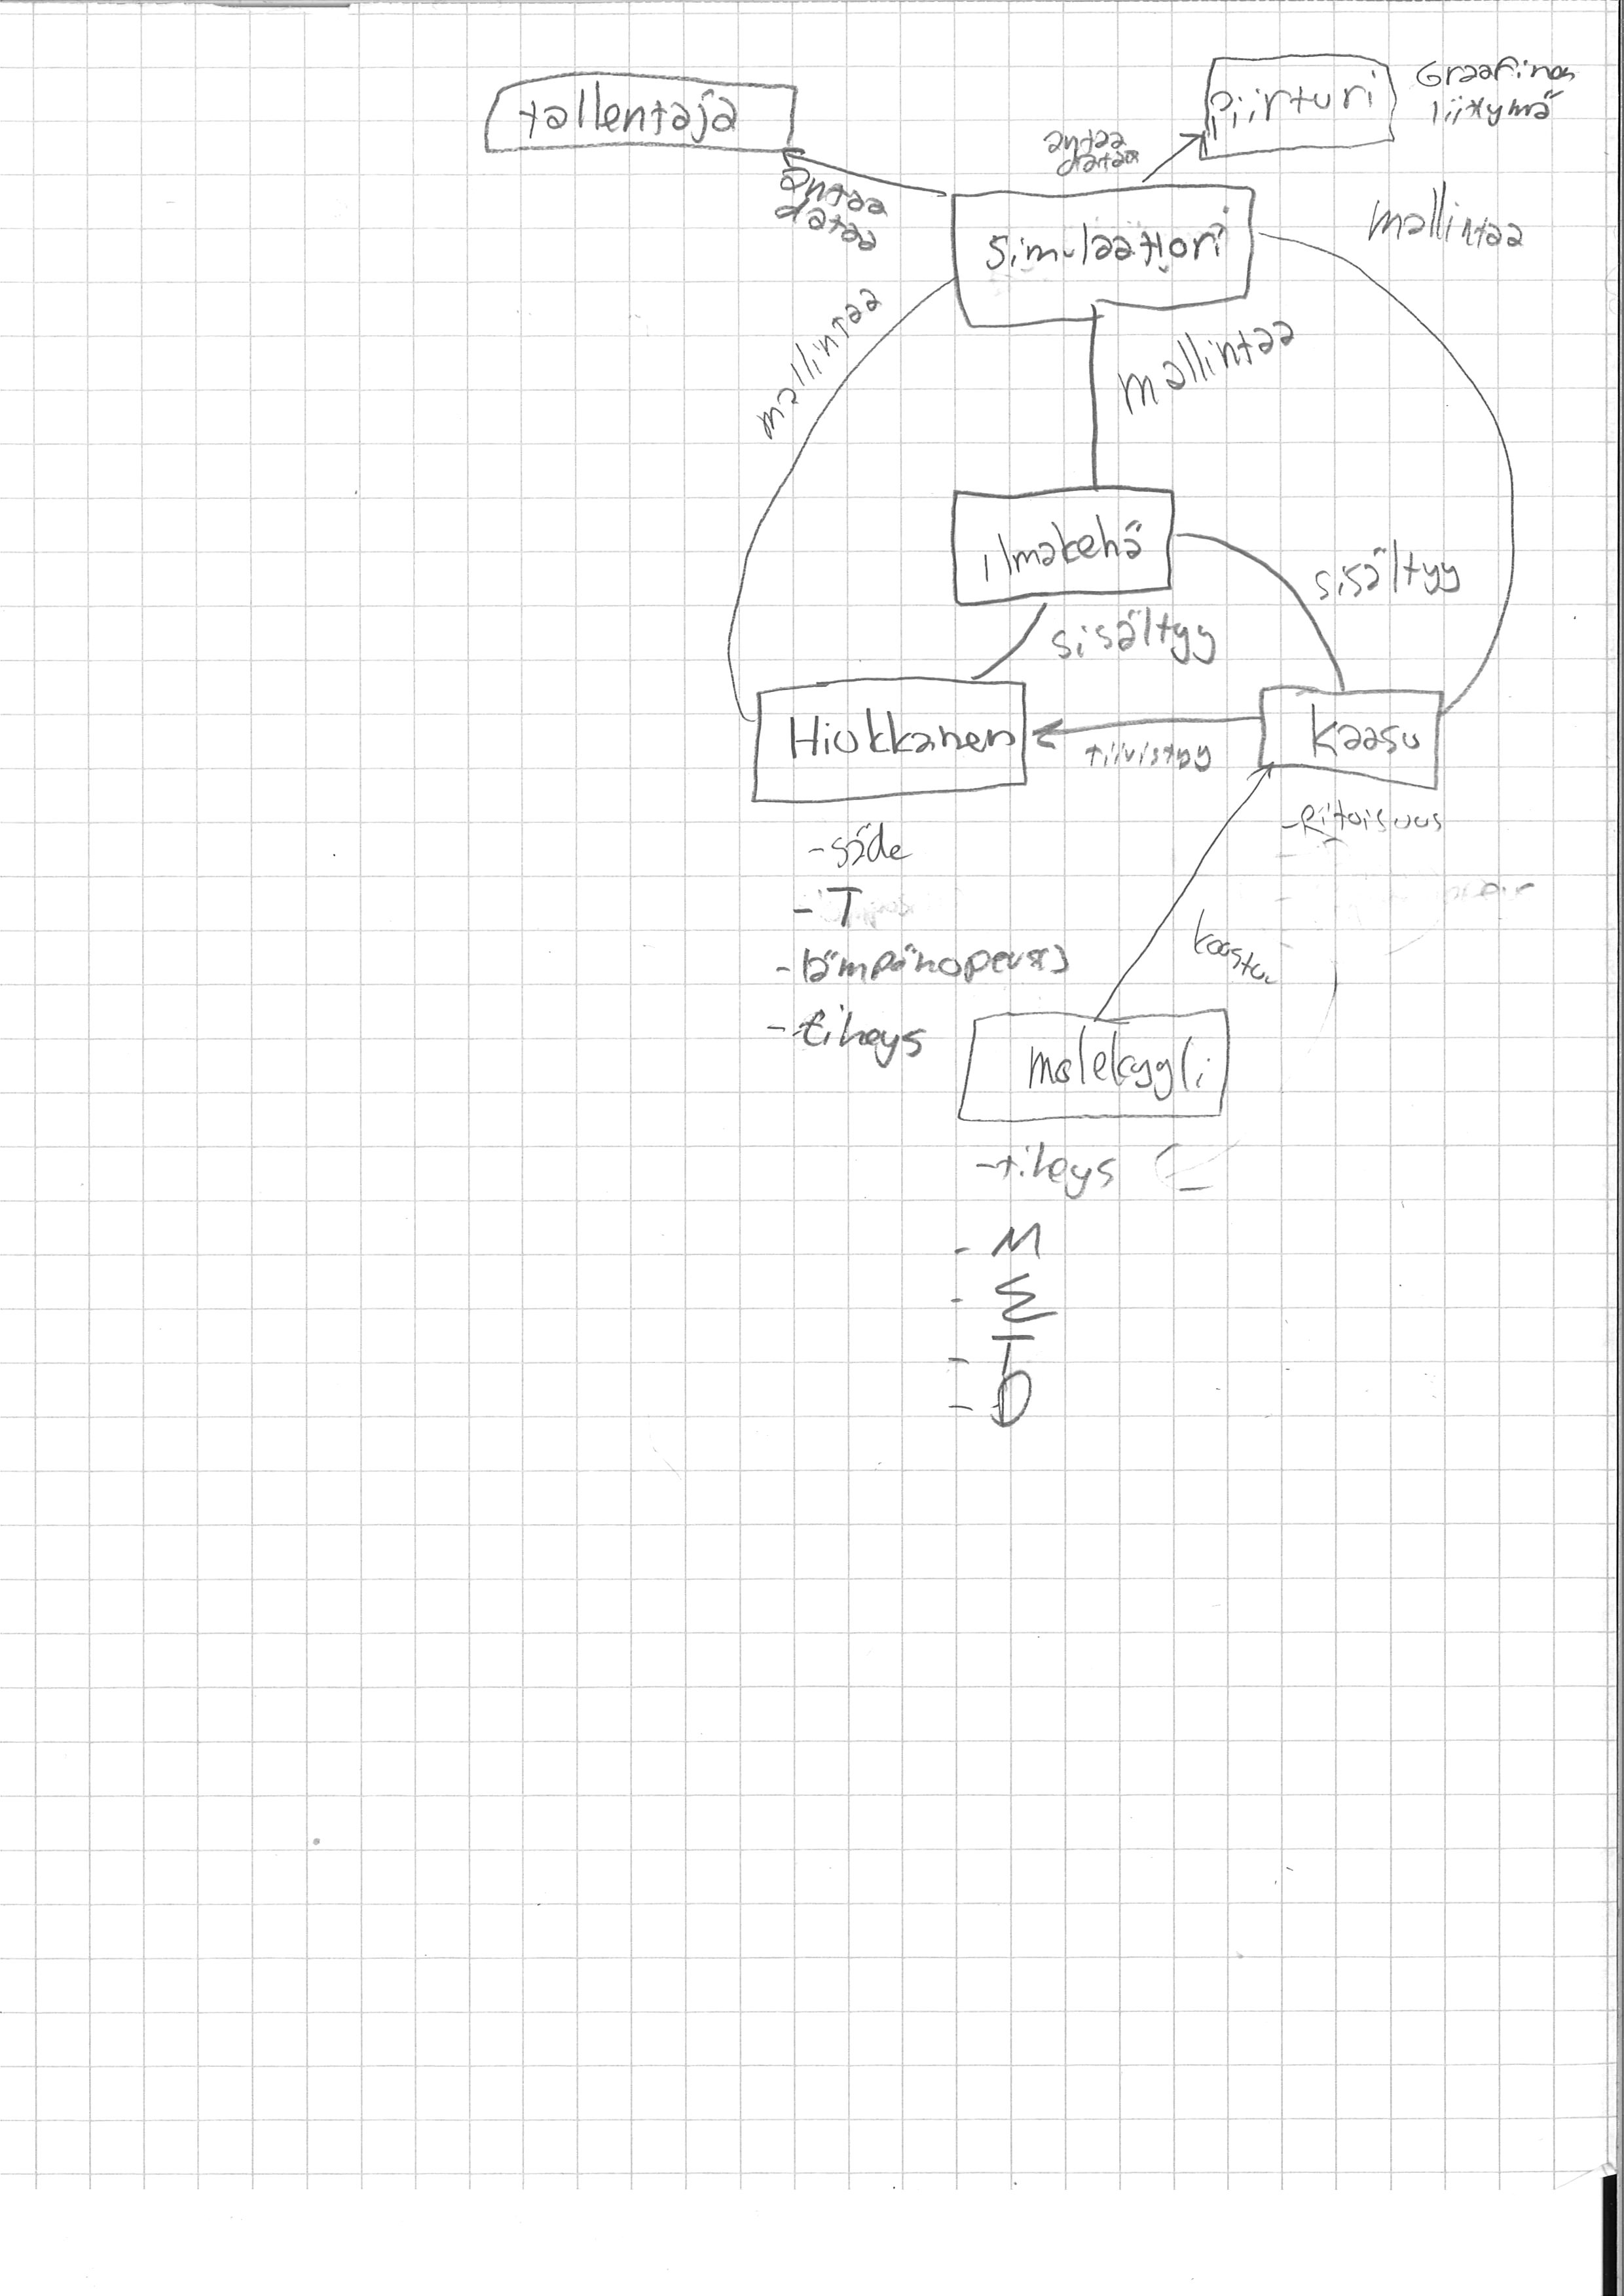 tallentaja
piirturi
Graafinen
liitymä
antaa
dataa
antaa
dataa
simulaattori
mallintaa
mallintaa
mallintaa
ilmakehä
sisältyy
sisältyy
Hiukkanen
tiivistyy
kaasu
-säde
- T
-tiheys
-pitoisuus
koostuu
molekyyli
-tiheys
- M
- T
- D